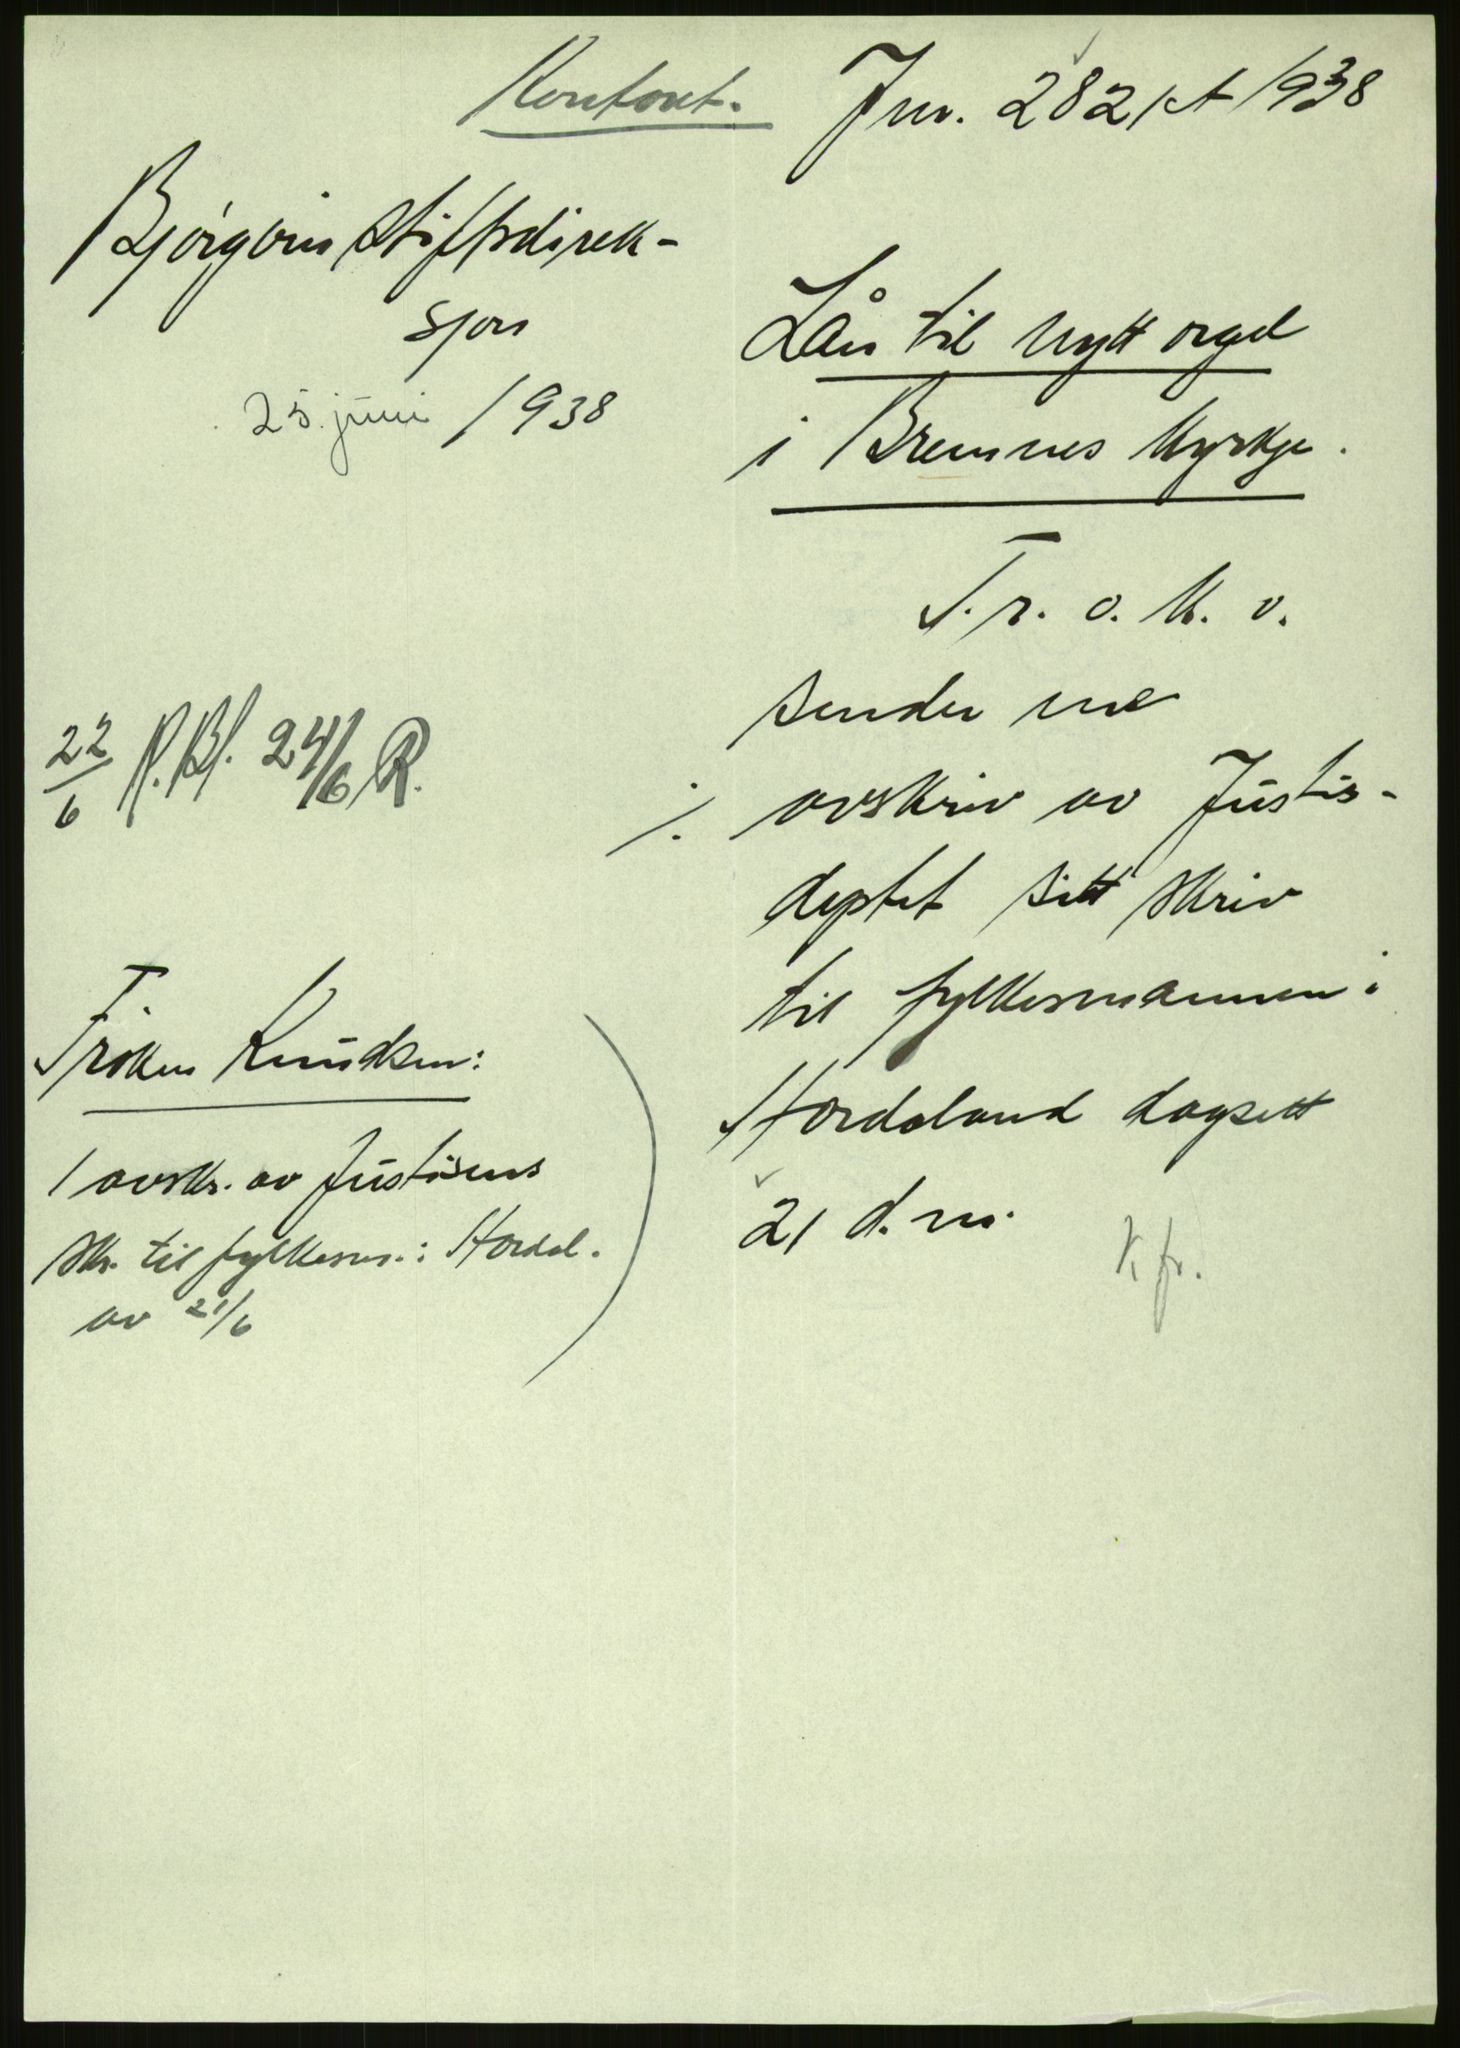 Konfort.
Jnr. 282 A 1938
Bjørgvin stiftsdirek-
sjon
25. juni 1938
Lån til nytt orgel
i Bremnes kyrkje.
T. r. o. k. v.
sender me
./. avskriv av Justis-
deptet sitt skriv
til fylkesmannen i
Hordaland dagsett
21 d. m.
K. fr.
22/6 24/6 R.
Frøken Knudsen:
1 avskr. av Justisens
skr. til fylkesm. i Hordal.
av 21/6